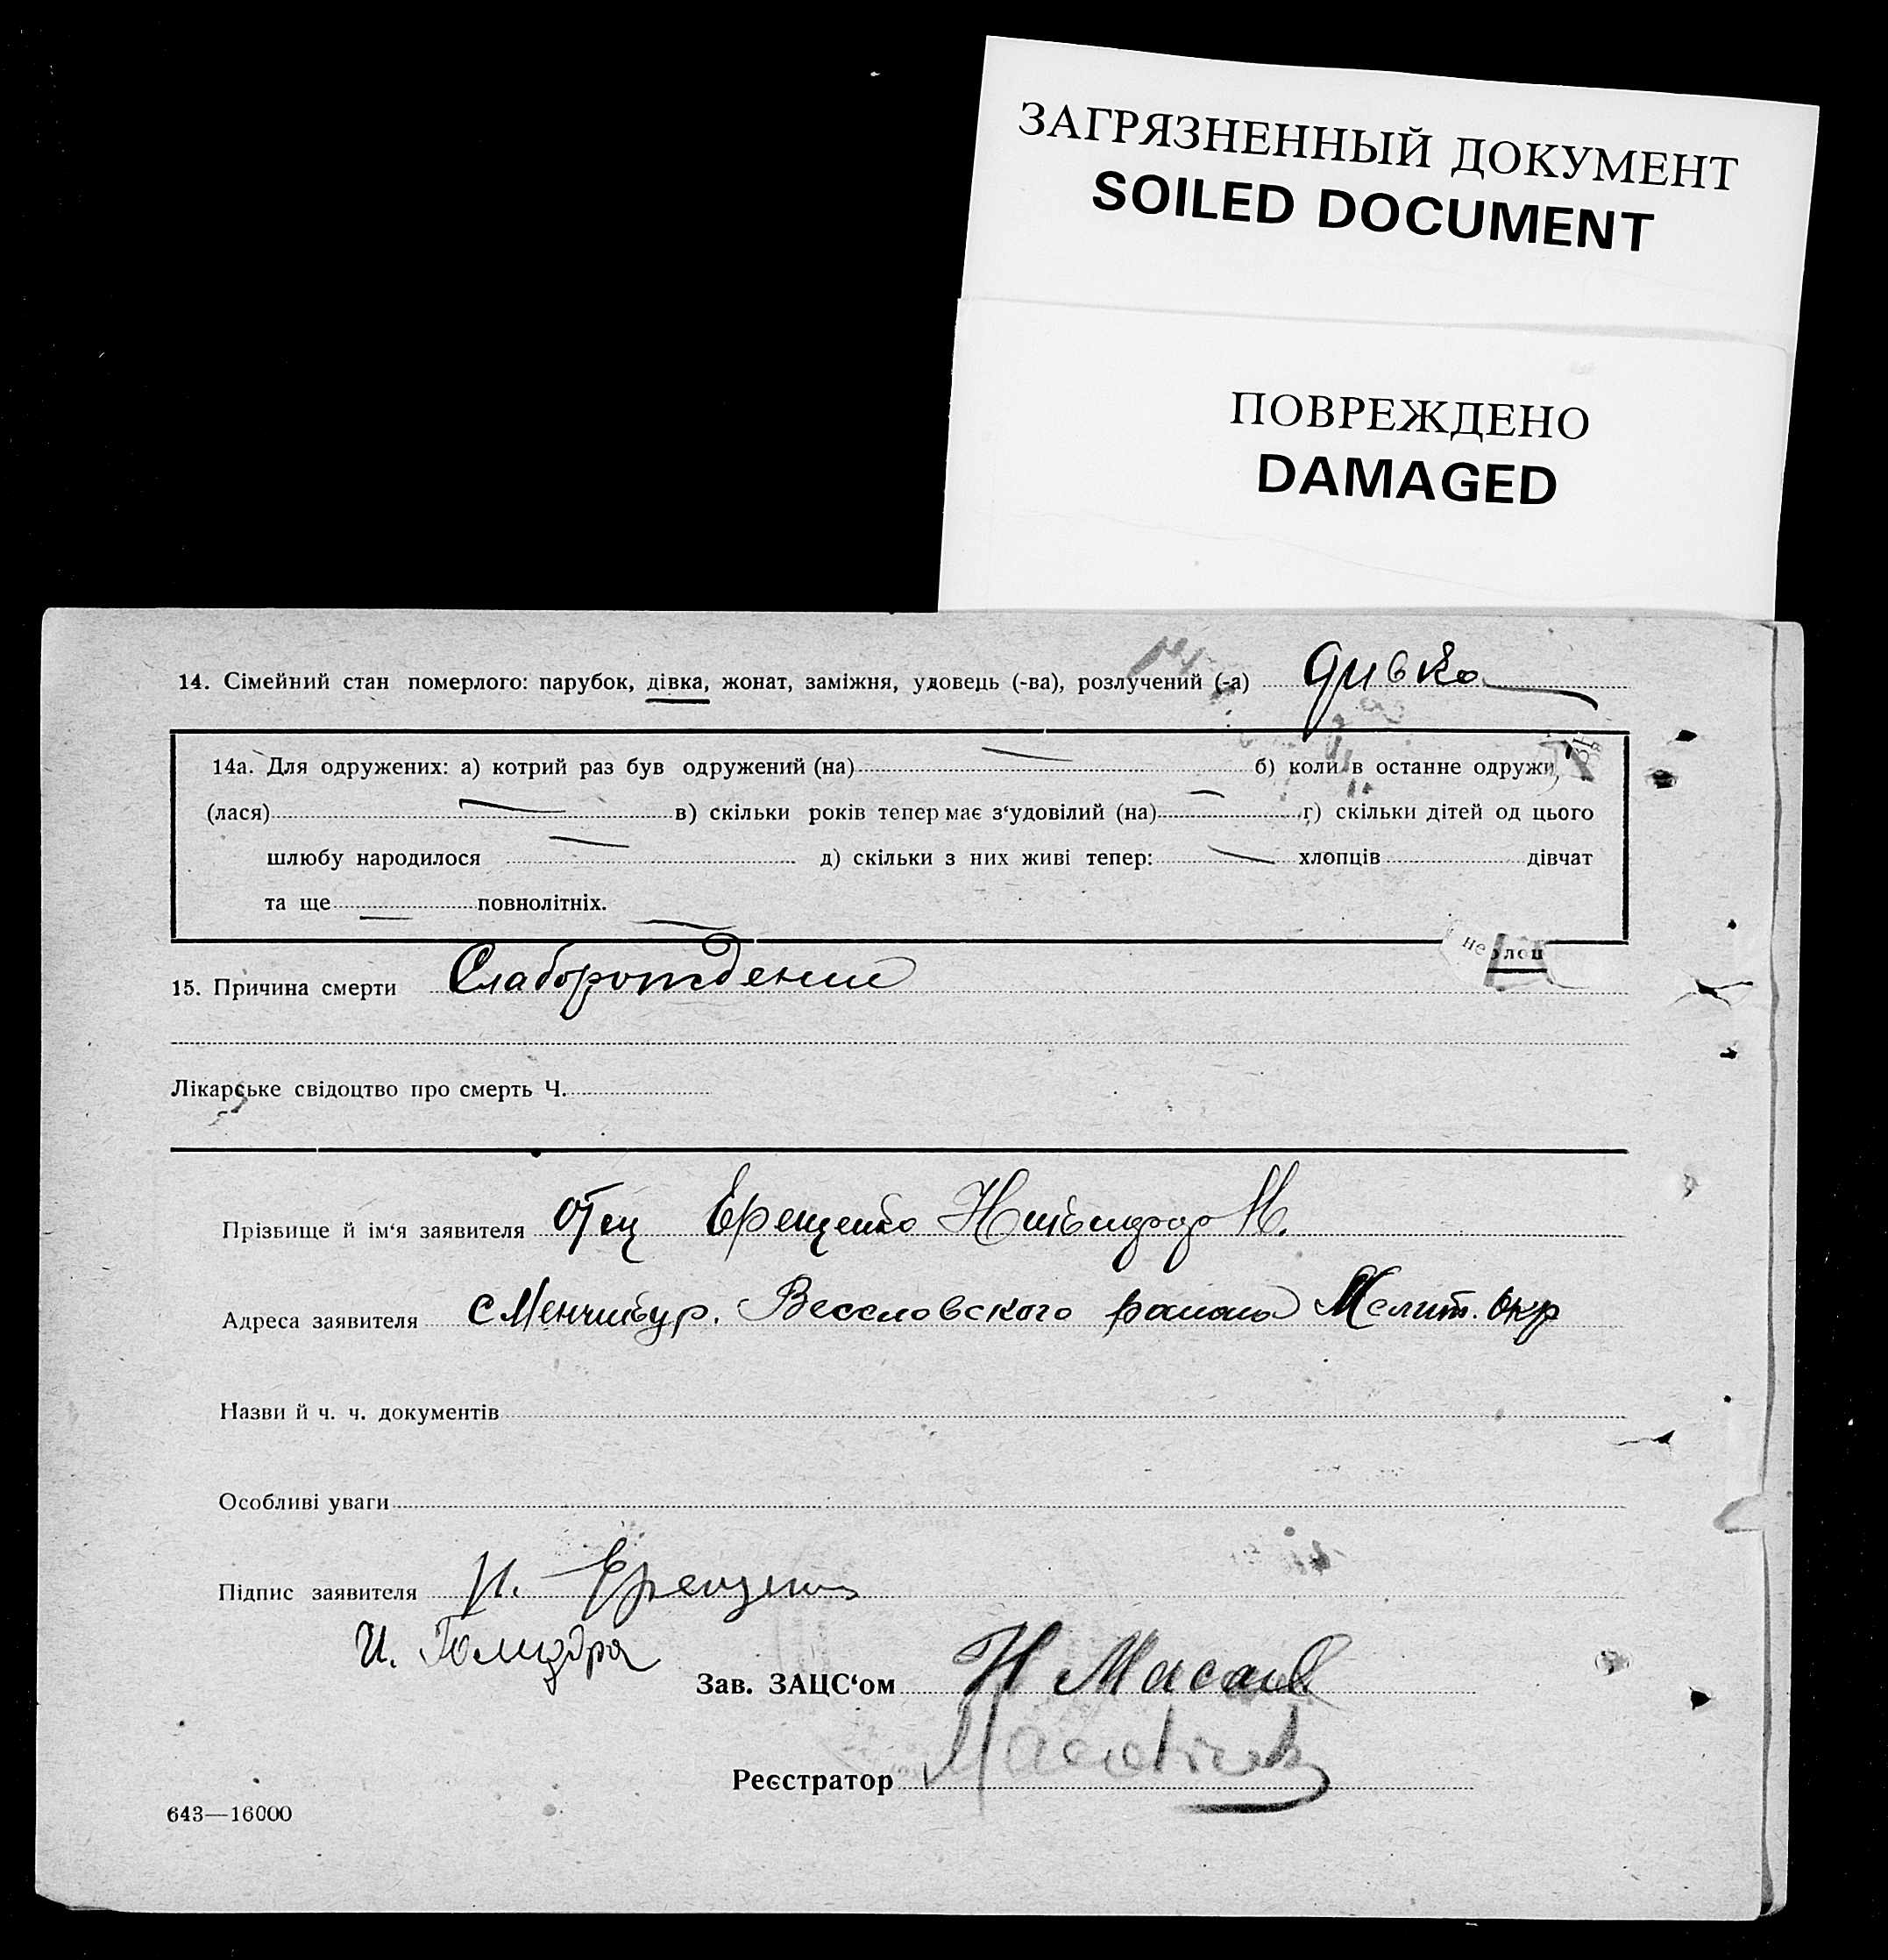 ЗАГРЯЗНЕННЫЙ ДОКУМЕНТ
SOILED DOCUMENT
ПОВРЕЖДЕНО
DAMAGED
14. Сімейний стан померлого: парубок, дівка, жонат, заміжня, удовець (-ва), розлучений (-а) дивка
14а. Для одружених: а) котрий раз був одружений (на) б) коли в останнє одружи
(лася) в) скільки років тепер має з‘удовілий (на) г) скільки дітей од цього
шлюбу народилося д) скільки з них живі тепер: хлопців дівчат
та ще повнолітніх.
15. Причина смерти Слаборождение
Лікарське свідоцтво про смерть Ч.
Прізвище й ім‘я заявителя отец Ерещенко
Адреса заявителя с Менчикур. Веселовского района Мелит. окр
Назви й ч. ч. документів
Особливі уваги
Підпис заявителя Ерещенко
И.
Зав. ЗАЦС‘ом Н
Реєстратор
643—16000